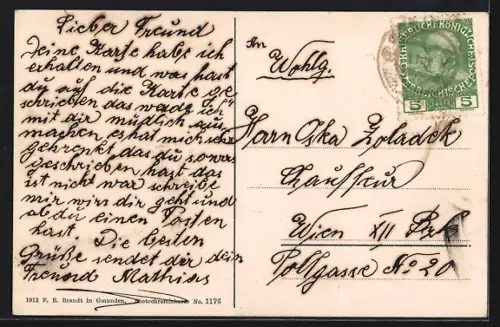 Lieber Freund
Deine Karte habe ich
erhalten und was hast
du auf die Karte ge
schrieben das werde ich
mit dir müdlich aus
machen es hat mich sehr
gekrenkt das du sowas
geschrieben hast das
ist nicht war schreibe
mir wies dir geht und
ob du einen Posten
hast. Die besten
Grüße sendet dir dein
Freund Mathias
1912 F. E. Brandt in Gmunden, Photochromiekarte No. 1176
An
Wohlg.
Herrn Oska Zoladek
Chauffeur
Wien XII
Pollgasse No 20
5 5